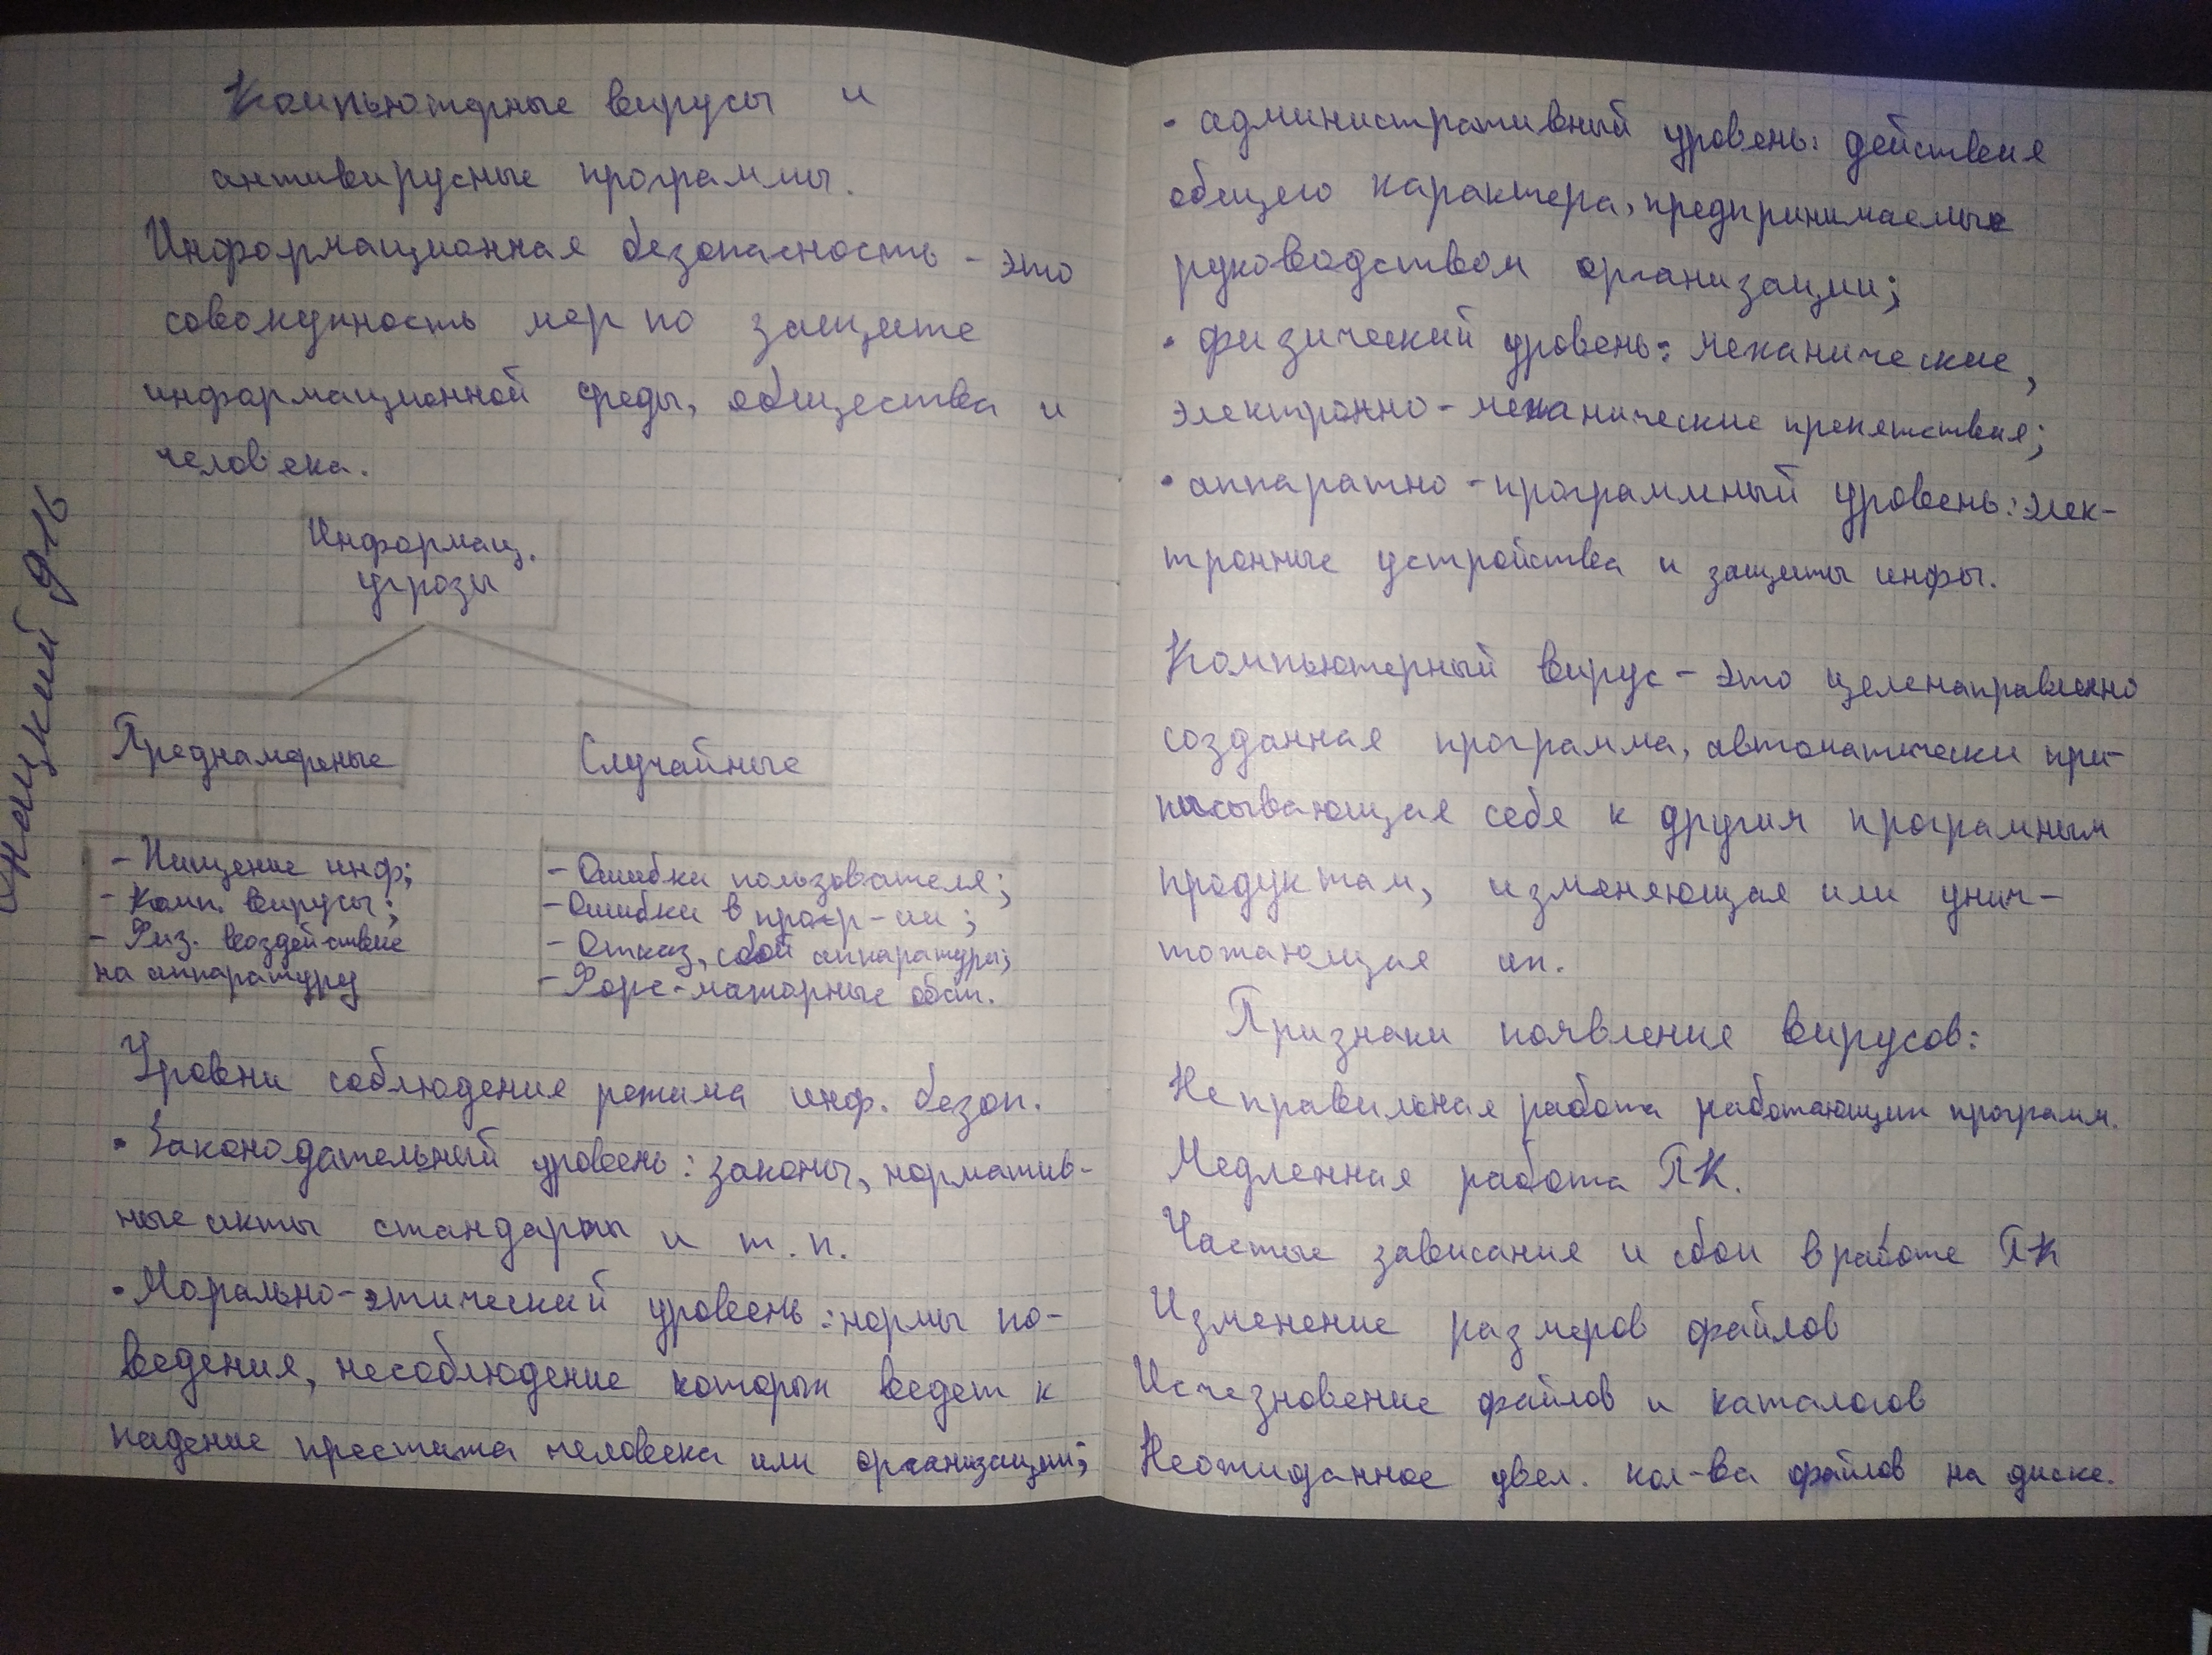 Компьютерные вирусы и
антивирусные программы.
Информационная безопасность - это
совокупность мер по защите
информационной среды, общества и
человека.
Информац.
угрозы
Преднамереные
Случайные
- Хищение инф;
- Комп. вирусы;
- Физ. воздействие
на аппаратуру
- Ошибки пользователя;
- Ошибки в прогр-ии;
- Отказ, сбой аппаратуры;
- Форс-мажорные обст.
Уровни соблюдения режима инф. безоп.
• Законодательный уровень: законы, норматив-
ные акты стандарты и т.п.
• Морально-этический уровень: нормы по-
ведения, несоблюдение которых ведет к
падение престижа человека или организации;
• административный уровень: действия
общего характера, предпринимаемые
руководством организации;
• физический уровень: механические,
электронно-механические препятствия;
• аппаратно-программный уровень: элек-
тронные устройства и защиты инфы.
Компьютерный вирус - это целенаправленно
созданная программа, автоматически при-
писывающая себя к другим програмным
продуктам, изменяющая или унич-
тожающая их.
Признаки появление вирусов:
Неправильная работа работающих программ.
Медленная работа ПК.
Частые зависания и сбои в работе ПК
Изменение размеров файлов
Исчезновение файлов и каталогов
Неожиданное увел. кол-ва файлов на диске.
9-16